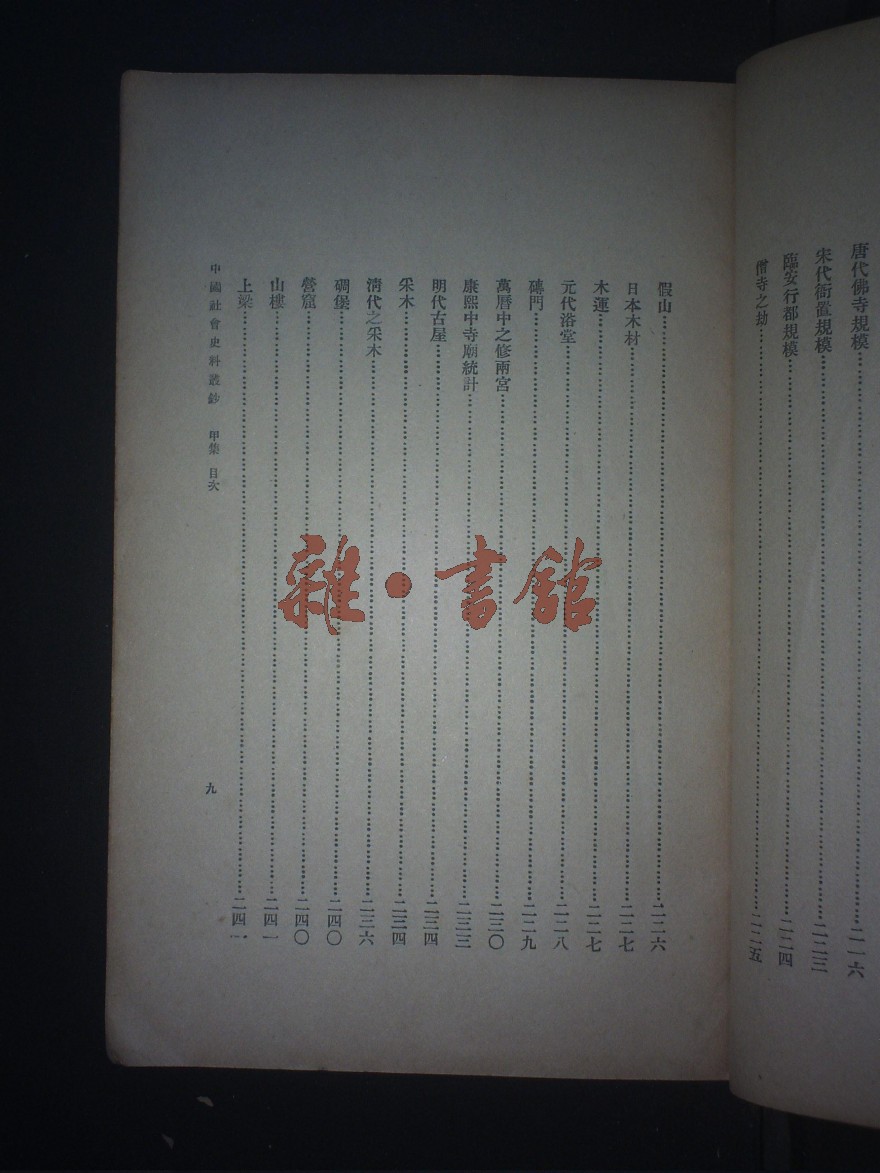 唐代佛寺規模……二一六
宋代衙置規模……二二三
臨安行都規模……二二四
僧寺之劫……二二五
假山……二二六
日本木材……二二七
木運……二二七
元代浴堂……二二八
磚門……二二九
萬曆中之修兩宮……二三〇
康熙中寺廟統計……二三三
明代古屋……二三四
采木……二三四
清代之采木……二三六
碉堡……二四〇
營窟……二四〇
山樓……二四一
上梁……二四一
中國社會史料叢鈔 甲集 目次
九
雜·書館